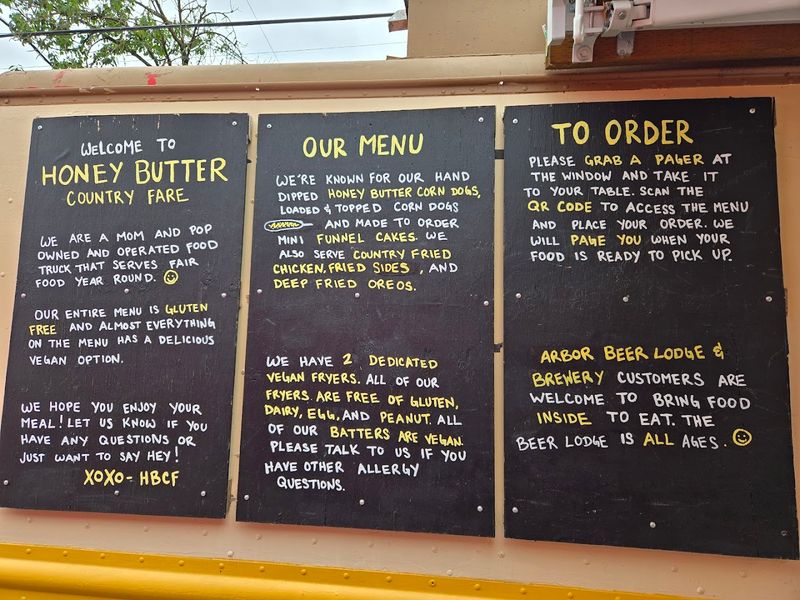 WELCOME TO
HONEY BUTTER
COUNTRY FARE
WE ARE A MOM AND POP
OWNED AND OPERATED FOOD
TRUCK THAT SERVES FAIR
FOOD YEAR ROUND.
OUR ENTIRE MENU IS GLUTEN
FREE AND ALMOST EVERYTHING
ON THE MENU HAS A DELICIOUS
VEGAN OPTION.
WE HOPE YOU ENJOY YOUR
MEAL! LET US KNOW IF YOU
HAVE ANY QUESTIONS OR
JUST WANT TO SAY HEY!
XOXO- HBCF
OUR MENU
WE'RE KNOWN FOR OUR HAND
DIPPED HONEY BUTTER CORN DOGS,
LOADED & TOPPED CORN DOGS
AND MADE TO ORDER
MINI FUNNEL CAKES. WE
ALSO SERVE COUNTRY FRIED
CHICKEN, FRIED SIDES, AND
DEEP FRIED OREOS.
WE HAVE 2 DEDICATED
VEGAN FRYERS. ALL OF OUR
FRYERS ARE FREE OF GLUTEN,
DAIRY, EGG, AND PEANUT. ALL
OF OUR BATTERS ARE VEGAN.
PLEASE TALK TO US IF YOU
HAVE OTHER ALLERGY
QUESTIONS.
TO ORDER
PLEASE GRAB A PAGER AT
THE WINDOW AND TAKE IT
TO YOUR TABLE. SCAN THE
QR CODE TO ACCESS THE MENU
AND PLACE YOUR ORDER. WE
WILL PAGE YOU WHEN YOUR
FOOD IS READY TO PICK UP.
ARBOR BEER LODGE &
BREWERY CUSTOMERS ARE
WELCOME TO BRING FOOD
INSIDE TO EAT. THE
BEER LODGE IS ALL AGES.